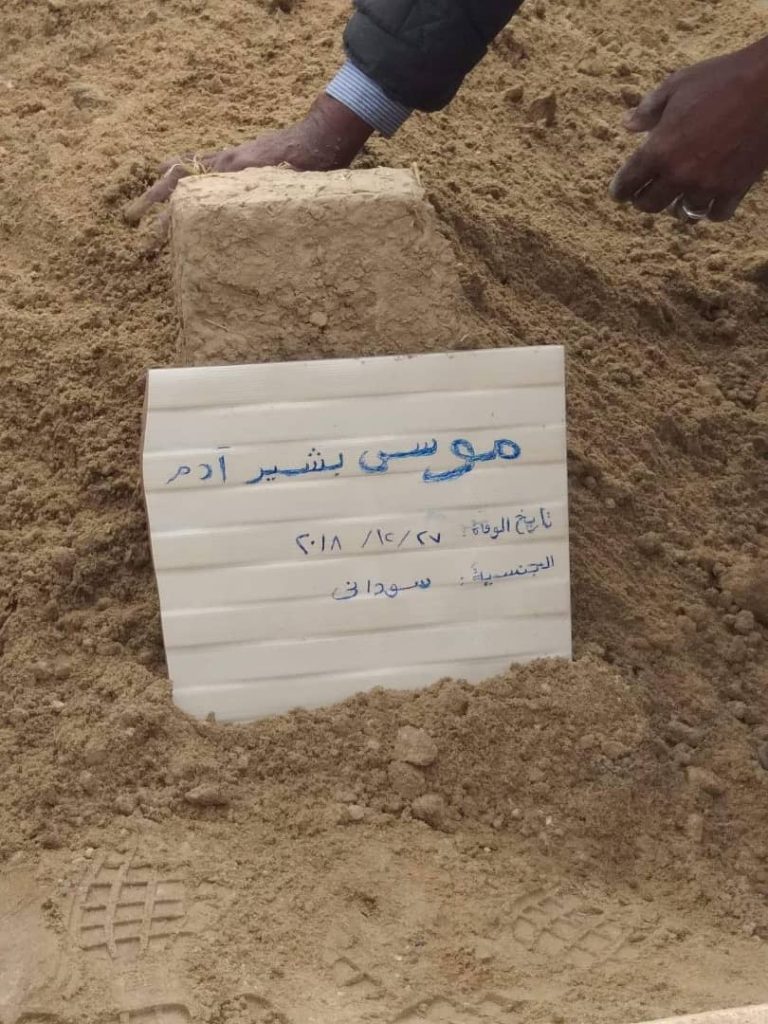 موسى بشير آدم
تاريخ الوفاة: ٢٧/١٢/ ٢٠١٨
الجنسية: سودانى